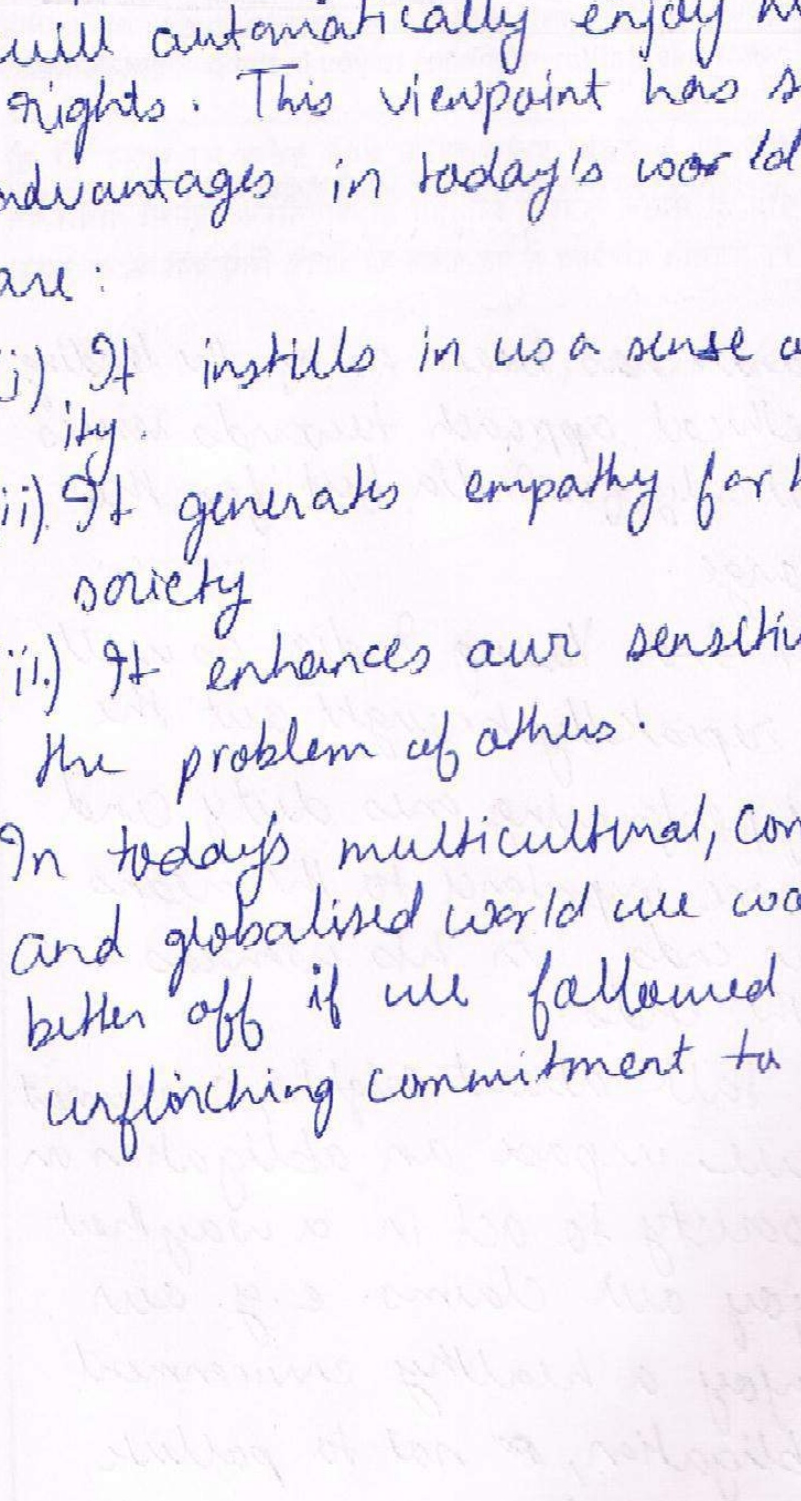 will automatically enjoy
rights. This viewpoint has
advantages in today's world
are:
i) It instills in us a sense
ity.
ii) It generates empathy for
society
iii.) It enhances our sensiti
the problem of others.
In today's multicultural, com
and globalised world we wo
better off if we followed
unflinching commitment to